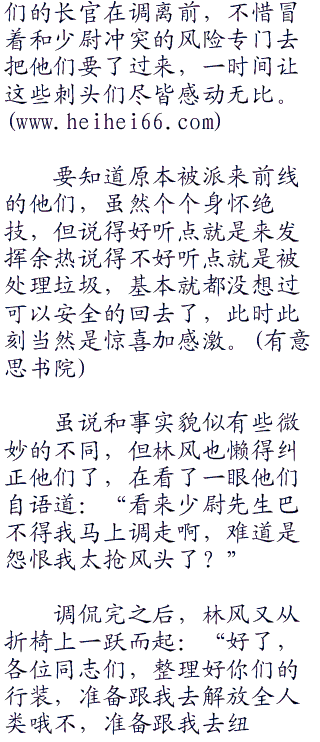 们的长官在调离前，不惜冒
着和少尉冲突的风险专门去
把他们要了过来，一时间让
这些刺头们尽皆感动无比。
(www.heihei66.com)
要知道原本被派来前线
的他们，虽然个个身怀绝
技，但说得好听点就是来发
挥余热说得不好听点就是被
处理垃圾，基本就都没想过
可以安全的回去了，此时此
刻当然是惊喜加感激。(有意
思书院)
虽说和事实貌似有些微
妙的不同，但林风也懒得纠
正他们了，在看了一眼他们
自语道：“看来少尉先生巴
不得我马上调走啊，难道是
怨恨我太抢风头了？”
调侃完之后，林风又从
折椅上一跃而起：“好了，
各位同志们，整理好你们的
行装，准备跟我去解放全人
类哦不，准备跟我去纽